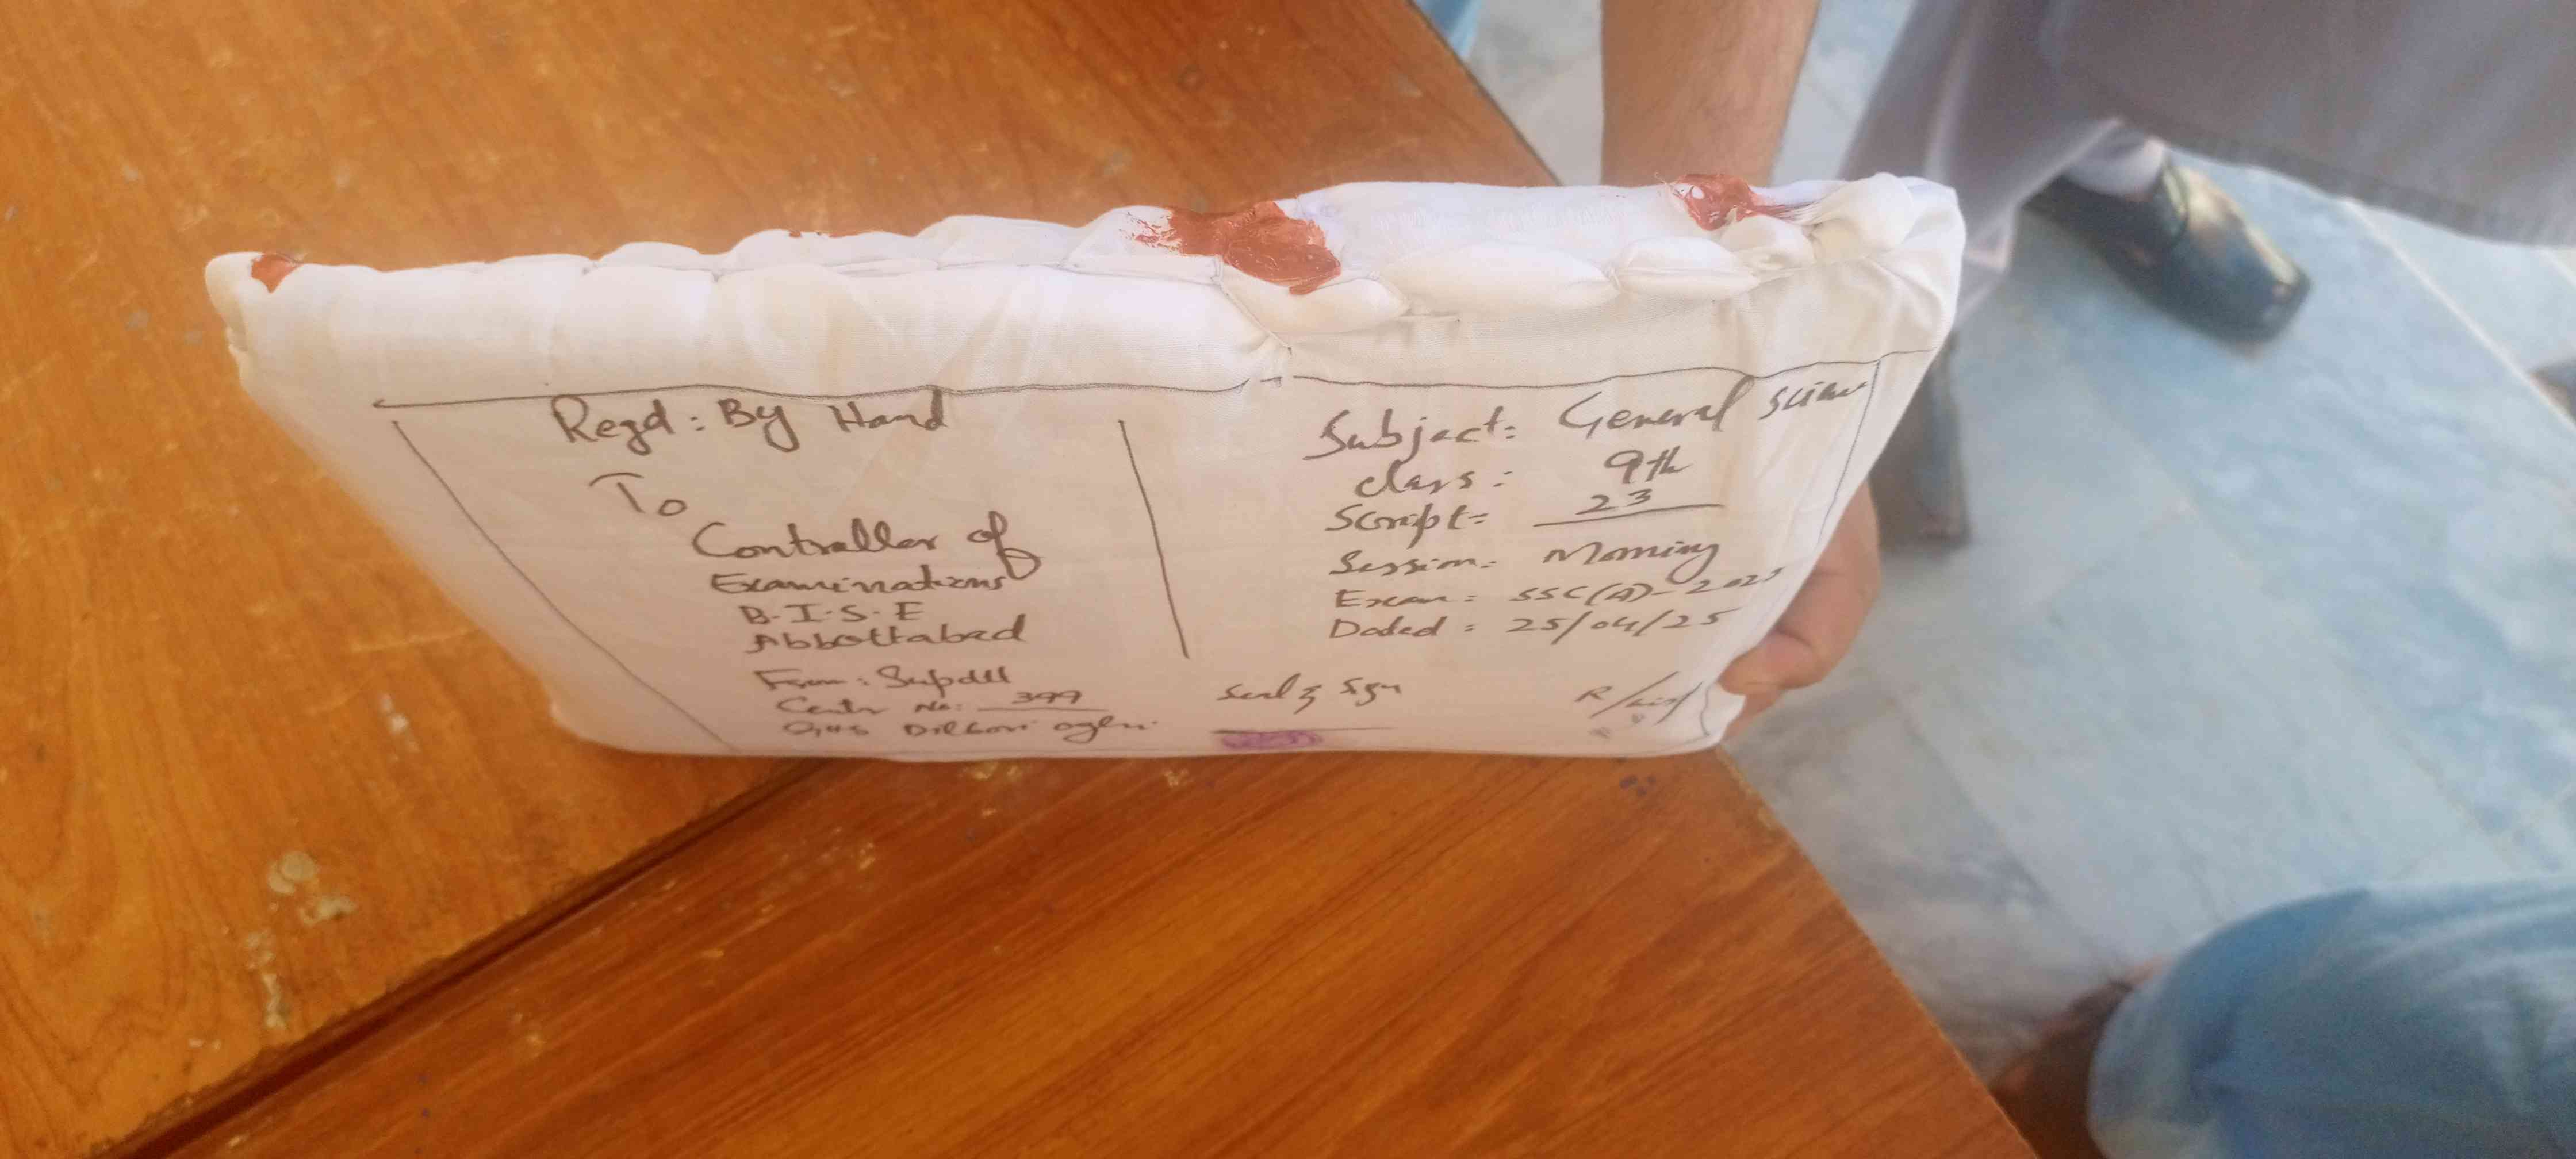 Regd: By Hand
To
Controller of
Examinations
B.I.S.E
Abbottabad
From: Supdtt
Centr No: 399
Dilbori oghi
Subject: General Science
class: 9th
Script= 23
Session: Morning
Exam: SSC(A)-2025
Dated: 25/04/25
Seal & Sign